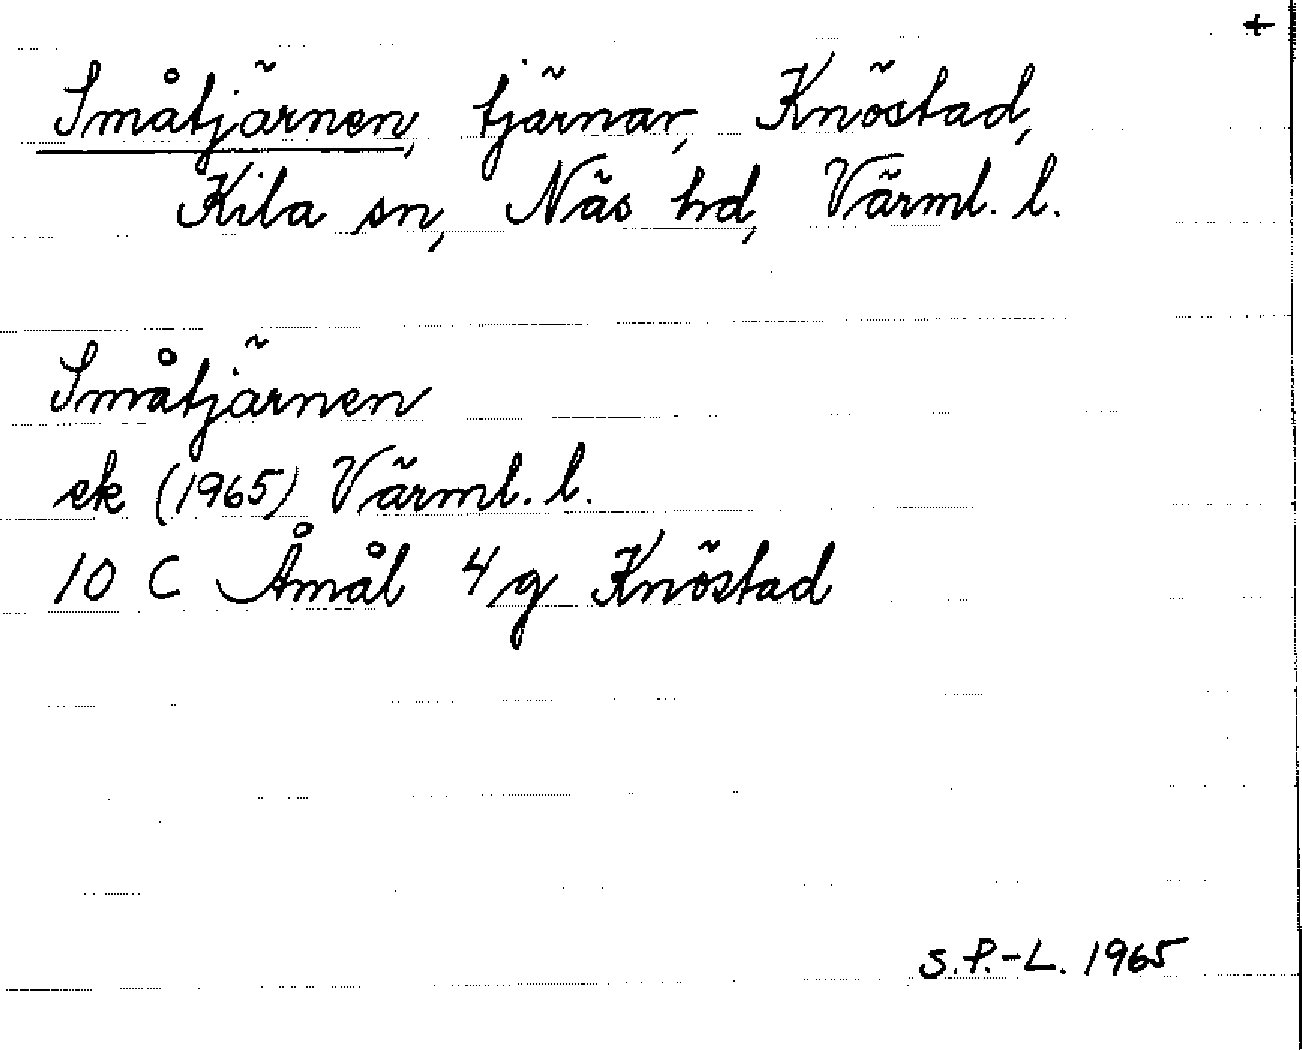 +
Småtjärnen, tjärnar, Knöstad,
Kila sn, Näs hd, Värml. l.
Småtjärnen
ek (1965) Värml. l.
10 C Åmål 4g Knöstad
S.P.-L. 1965